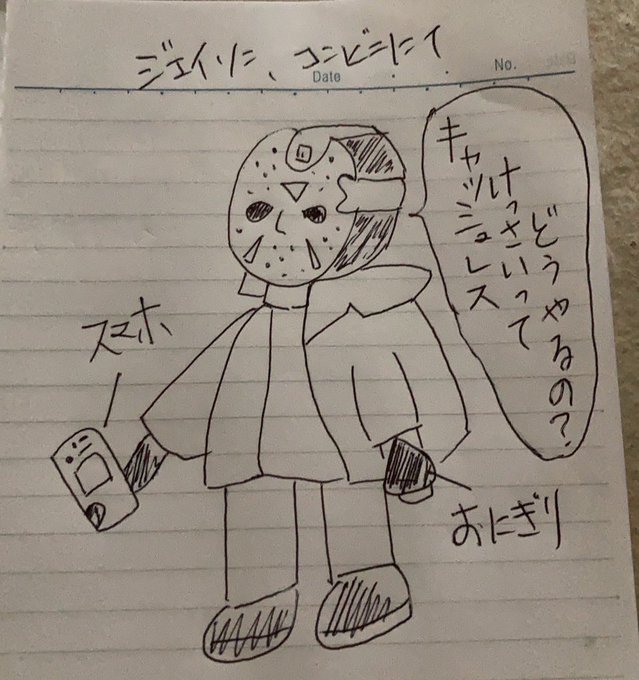 ジェイソン、コンビニにて
Date
No.
キャッシュレス
けっさいって
どうやるの?
スマホ
おにぎり